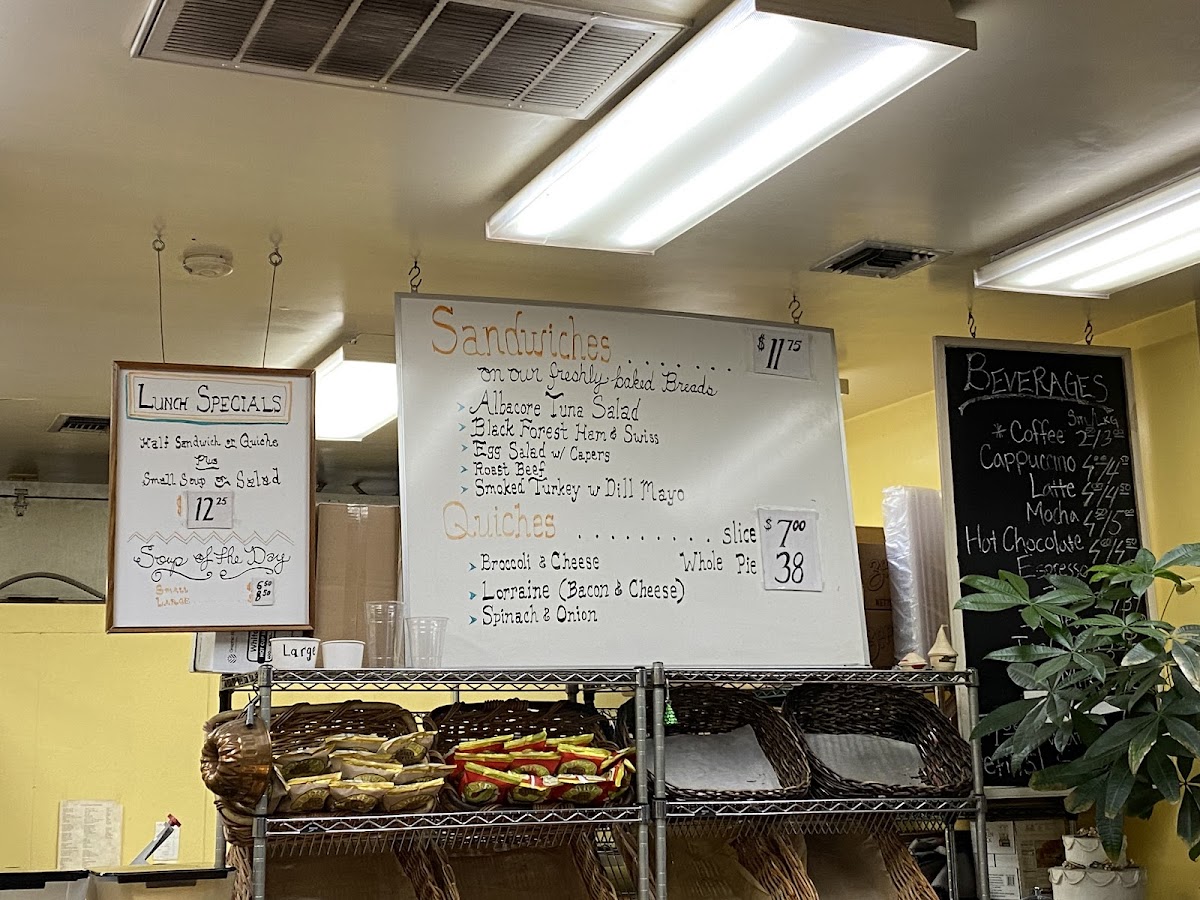 LUNCH SPECIALS
Half Sandwich or Quiche
Plus
Small Soup or Salad
$ 12 25
Soup of the Day
SMALL $ 6.50
LARGE 8.50
Large
Sandwiches . . . . . . . $ 11 75
on our freshly baked Breads
Albacore Tuna Salad
Black Forest Ham & Swiss
Egg Salad w/ Capers
Roast Beef
Smoked Turkey w Dill Mayo
Quiches . . . . . . . . . slice $ 7 00
Broccoli & Cheese Whole Pie 38
Lorraine (Bacon & Cheese)
Spinach & Onion
BEVERAGES
Sm/Lrg
* Coffee
Cappuccino
Latte
Mocha
Hot Chocolate
Espresso